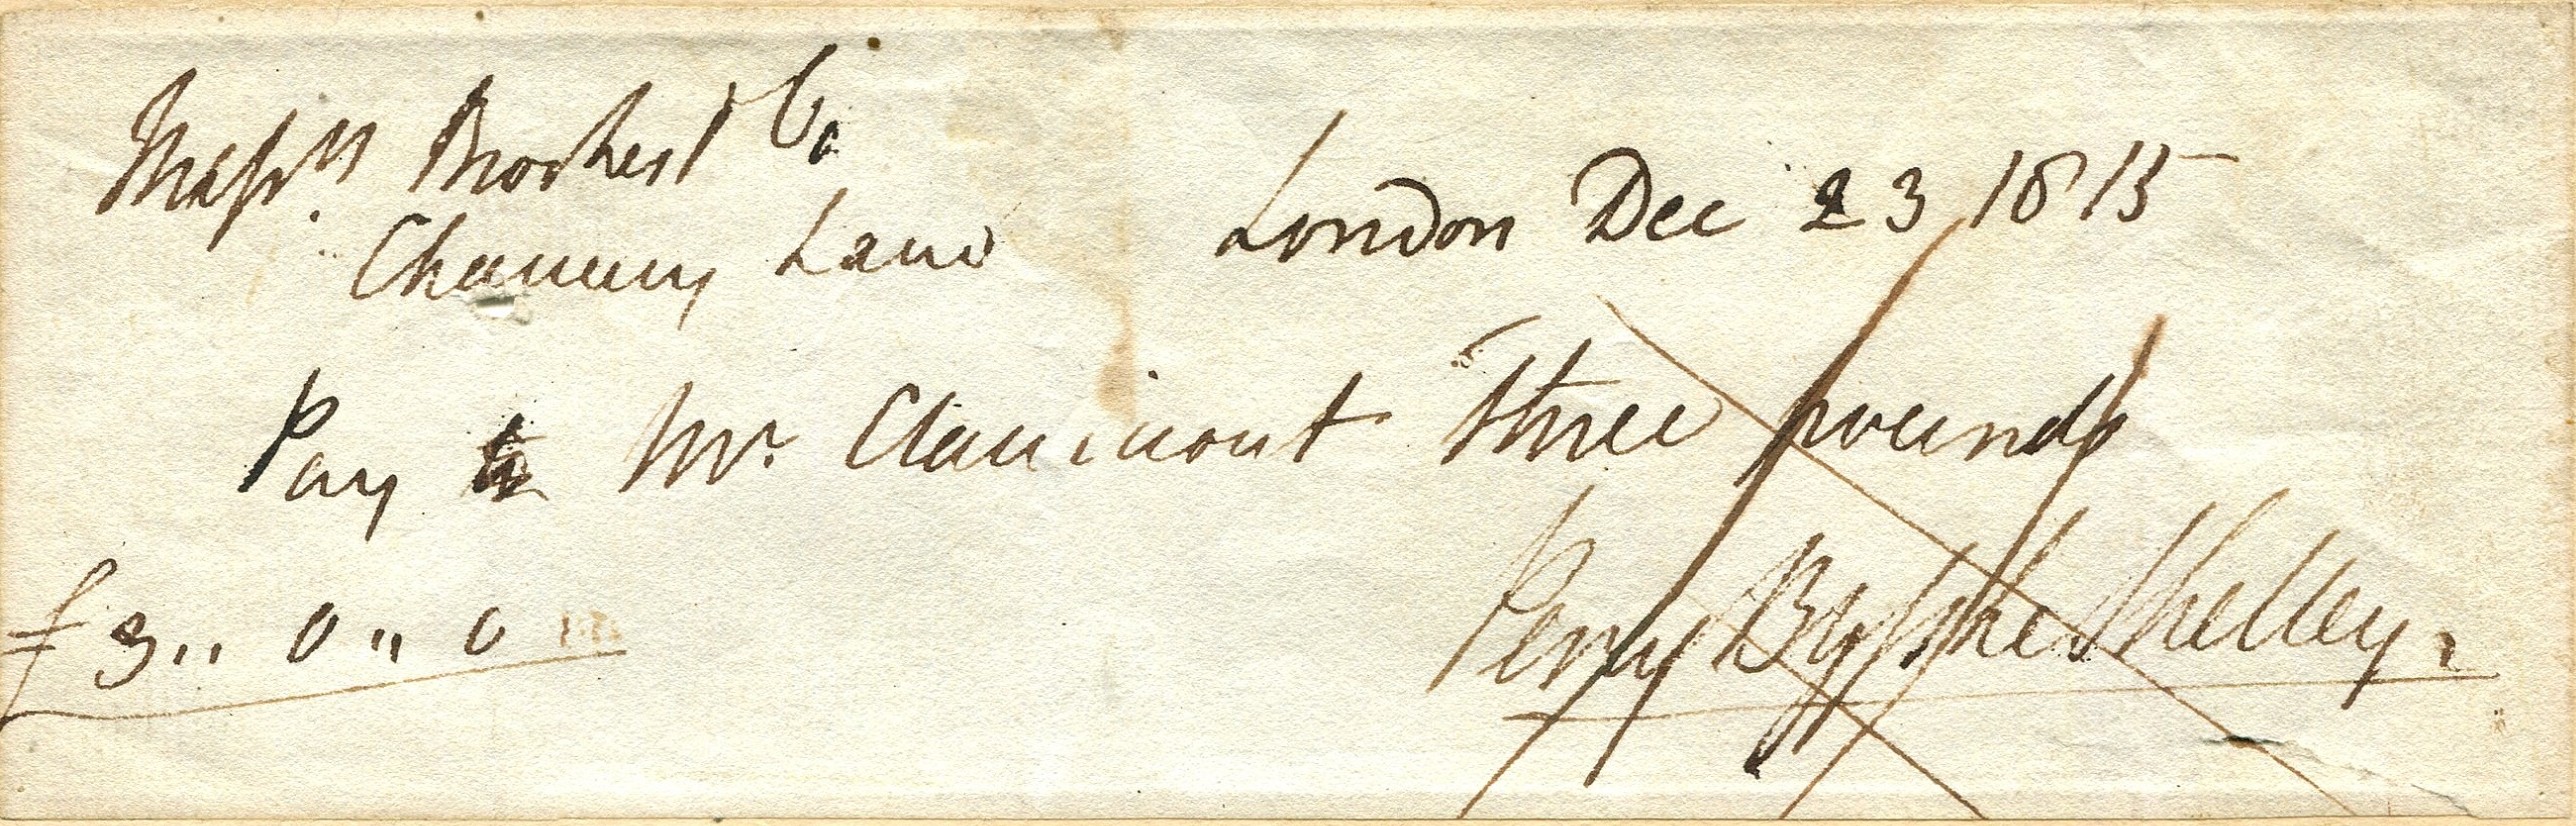 Messrs. Brookes & Co
Chancery Lane
London Dec 23 1815
Pay to Mr. Clairmont three pounds
£3 ,, 0 ,, 0
Percy Bysshe Shelley.